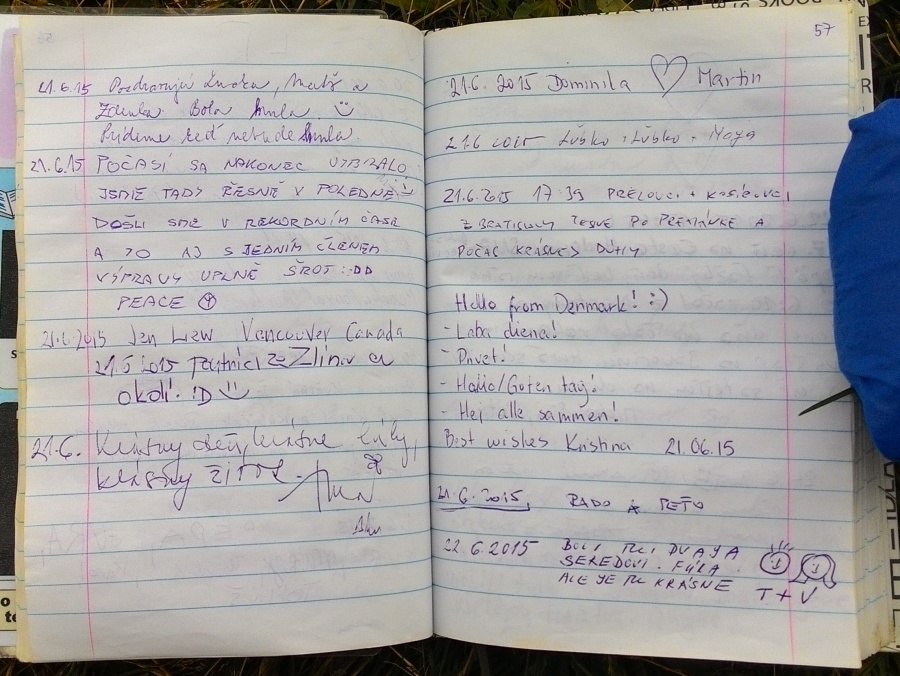 21.6.15 Pozdravujú
Zdenka Bola hmla
Prídeme keď nebude hmla.
21.6.15 POČASÍ SA NAKONEC VYBRALO
JSME TADY PŘESNĚ V POLEDNE
DOŠLI SME V REKORDNÍM ČASE
A TO AJ S JEDNÍM ČLENEM
VÝPRAVY UPLNĚ ŠROT :DD
PEACE
21.6.2015 Jen Liew Vancouver Canada
21.6 2015 Pútnici zo Zlína a
okolí. :D
21.6. Krásny deň, krásne
krásny
57
21.6. 2015 Dominika Martin
Ľubko + Ľubko +
21.6.2015 17:39
Z BRATISLAVY TESNE PO PRESTÁVKE A
POČAS KRÁSNEJ DÚHY
Hello from Denmark! :)
- Laba diena!
- Privet!
- Hallo/Guten tag!
- Hej alle sammen!
Best wishes Kristina 21.06.15
21.6.2015, RADO A PEŤO
22.6.2015 BOLI TU DVAJA
SEREĎOVI. FÚKA.
ALE JE TU KRÁSNE
T + V